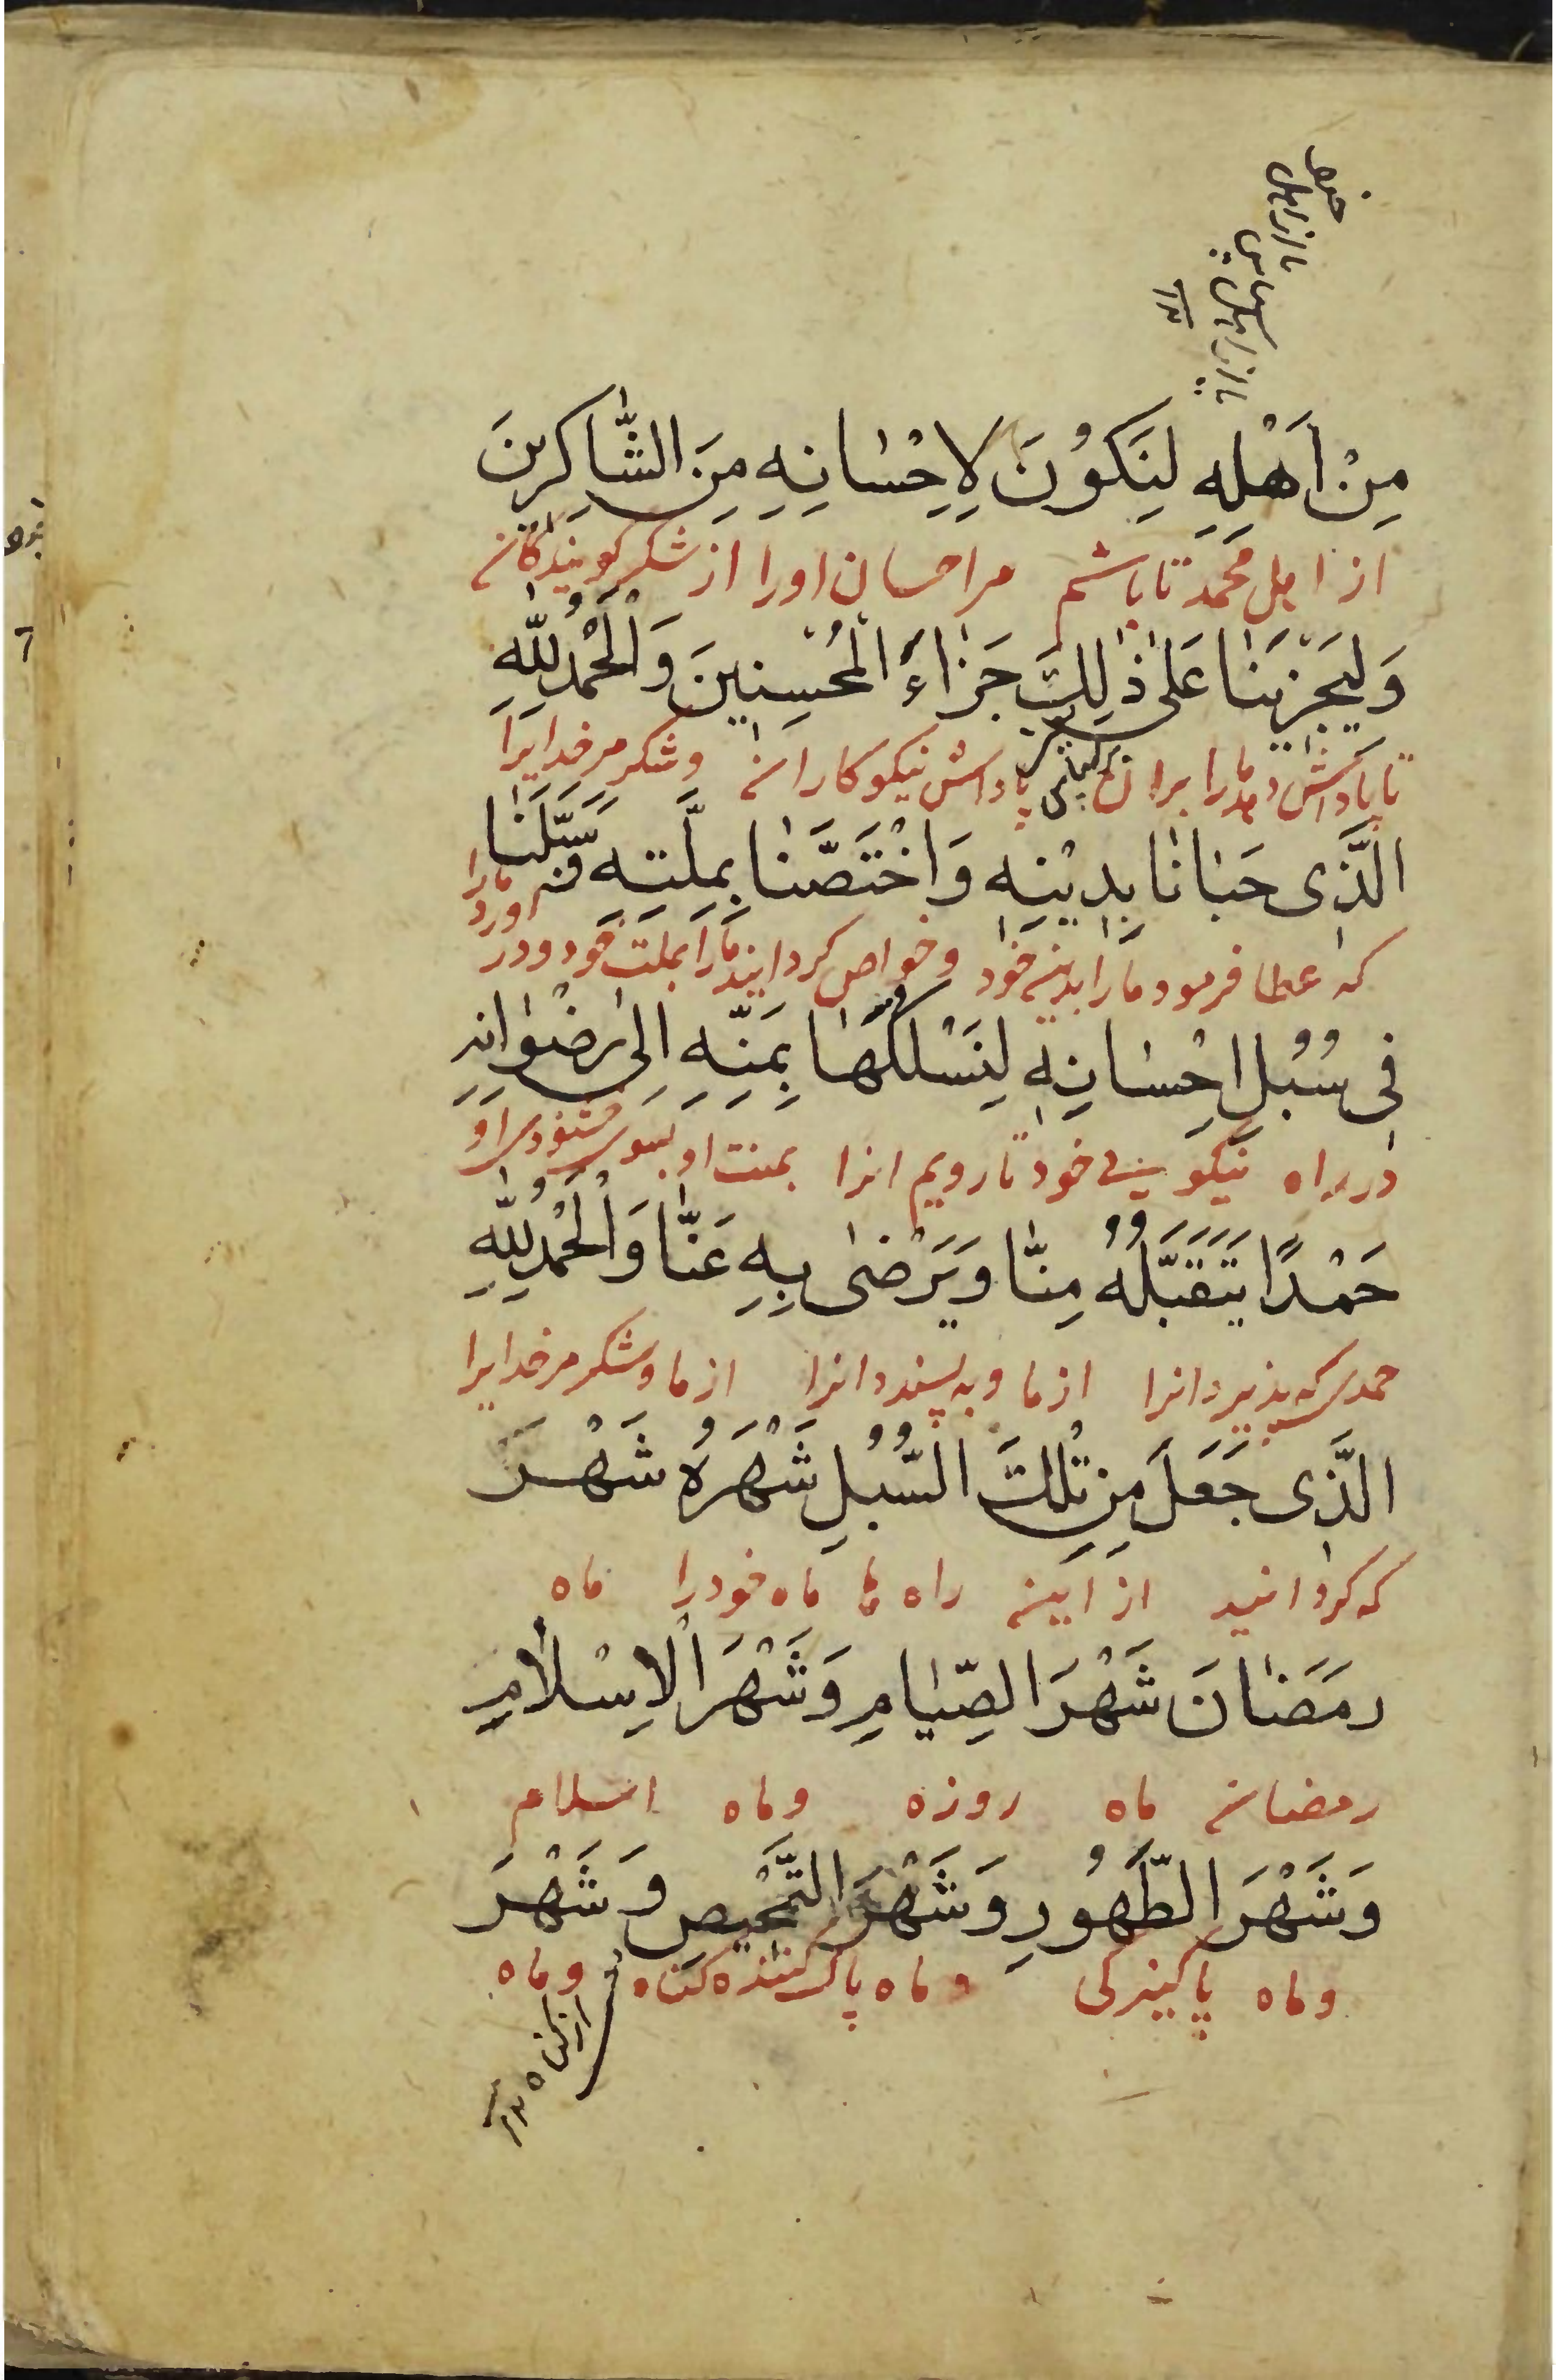 مِنْ اَهْلِهِ لِنَكُوْنَ لِاِحْسٰانِهِ مِنَ الشّٰاكِرِينَ
از اهل محمد تا باشم مر احسان اورا از شکر کویندکان
وَلِيَجْزِيَنٰا عَلىٰ ذٰلِكَ جَزٰاءَ الْمُحْسِنِينَ وَالْحَمْدُ لِلّٰهِ
تا پاداش دهد مارا بران پاداش نیکوکاران و شکر مر خدایرا
الَّذِى حَبٰانٰا بِدِيْنِهِ وَاخْتَصَّنٰا بِمِلَّتِهِ وَسَبَّلَنٰا
که عطا فرمود مارا بدین خود و خواص کردانید مارا بملت خود و در اورد مارا
فِى سُبُلِ اِحْسٰانِهِ لِنَسْلُكَهٰا بِمَنِّهِ اِلىٰ رِضْوٰانِهِ
در راه نیکویی خود تا رویم انرا بمنت او بسوی خشنودی او
حَمْدًا يَتَقَبَّلُهُ مِنّٰا وَيَرْضىٰ بِهِ عَنّٰا وَالْحَمْدُ لِلّٰهِ
حمدی که بپذیرد انرا از ما و به پسندد انرا از ما و شکر مر خدایرا
الَّذِى جَعَلَ مِنْ تِلْكَ السُّبُلِ شَهْرَهُ شَهْرَ
که کردانید از این راه ها ماه خود را ماه
رَمَضٰانَ شَهْرَ الصِّيٰامِ وَشَهْرَ الْاِسْلٰامِ
رمضان ماه روزه و ماه اسلام
وَشَهْرَ الطَّهُورِ وَشَهْرَ التَّمْحِيصِ وَشَهْرَ
و ماه پاکیزکی و ماه پاک کننده کناه و ماه
از کناه